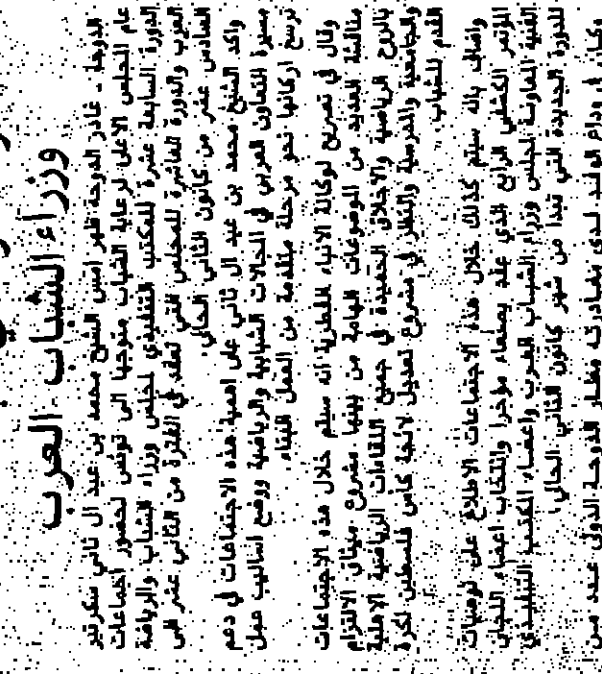 وزراء الشباب العرب
الدوحة - غادر الدوحة ظهر امس الشيخ محمد بن عيد ال ثاني سكرتير
عام المجلس الاعلى لرعاية الشباب متوجها الى تونس لحضور اجتماعات
الدورة السابعة عشرة للمكتب التنفيذي لمجلس وزراء الشباب والرياضة
العرب والدورة العاشرة للمجلس التي تعقد في الفترة من الثاني عشر الى
السادس عشر من كانون الثاني الحالي.
واكد الشيخ محمد بن عيد ال ثاني على اهمية هذه الاجتماعات في دعم
مسيرة التعاون العربي في المجالات الشبابية والرياضية ووضع اساليب عمل
ترسخ اركانها نحو مرحلة متقدمة من العمل البناء.
وقال في تصريح لوكالة الانباء القطرية انه سيتم خلال هذه الاجتماعات
مناقشة العديد من الموضوعات الهامة من بينها مشروع ميثاق الالتزام
بالروح الرياضية والاخلاق الحميدة في جميع اللقاءات الرياضية الاهلية
والجامعية والمدرسية والنظر في مشروع تعديل لائحة كأس فلسطين لكرة
القدم للشباب.
واضاف بانه سيتم كذلك خلال هذه الاجتماعات الاطلاع على توصيات
المؤتمر الكشفي الرابع الذي عقد بصنعاء مؤخرا وانتخاب اعضاء اللجان
الفنية المعاونة لمجلس وزراء الشباب العرب واعضاء المكتب التنفيذي
للدورة الجديدة التي تبدأ من شهر كانون الثاني الحالي.
وكان في وداع الوفد لدى مغادرته مطار الدوحة الدولي عدد من